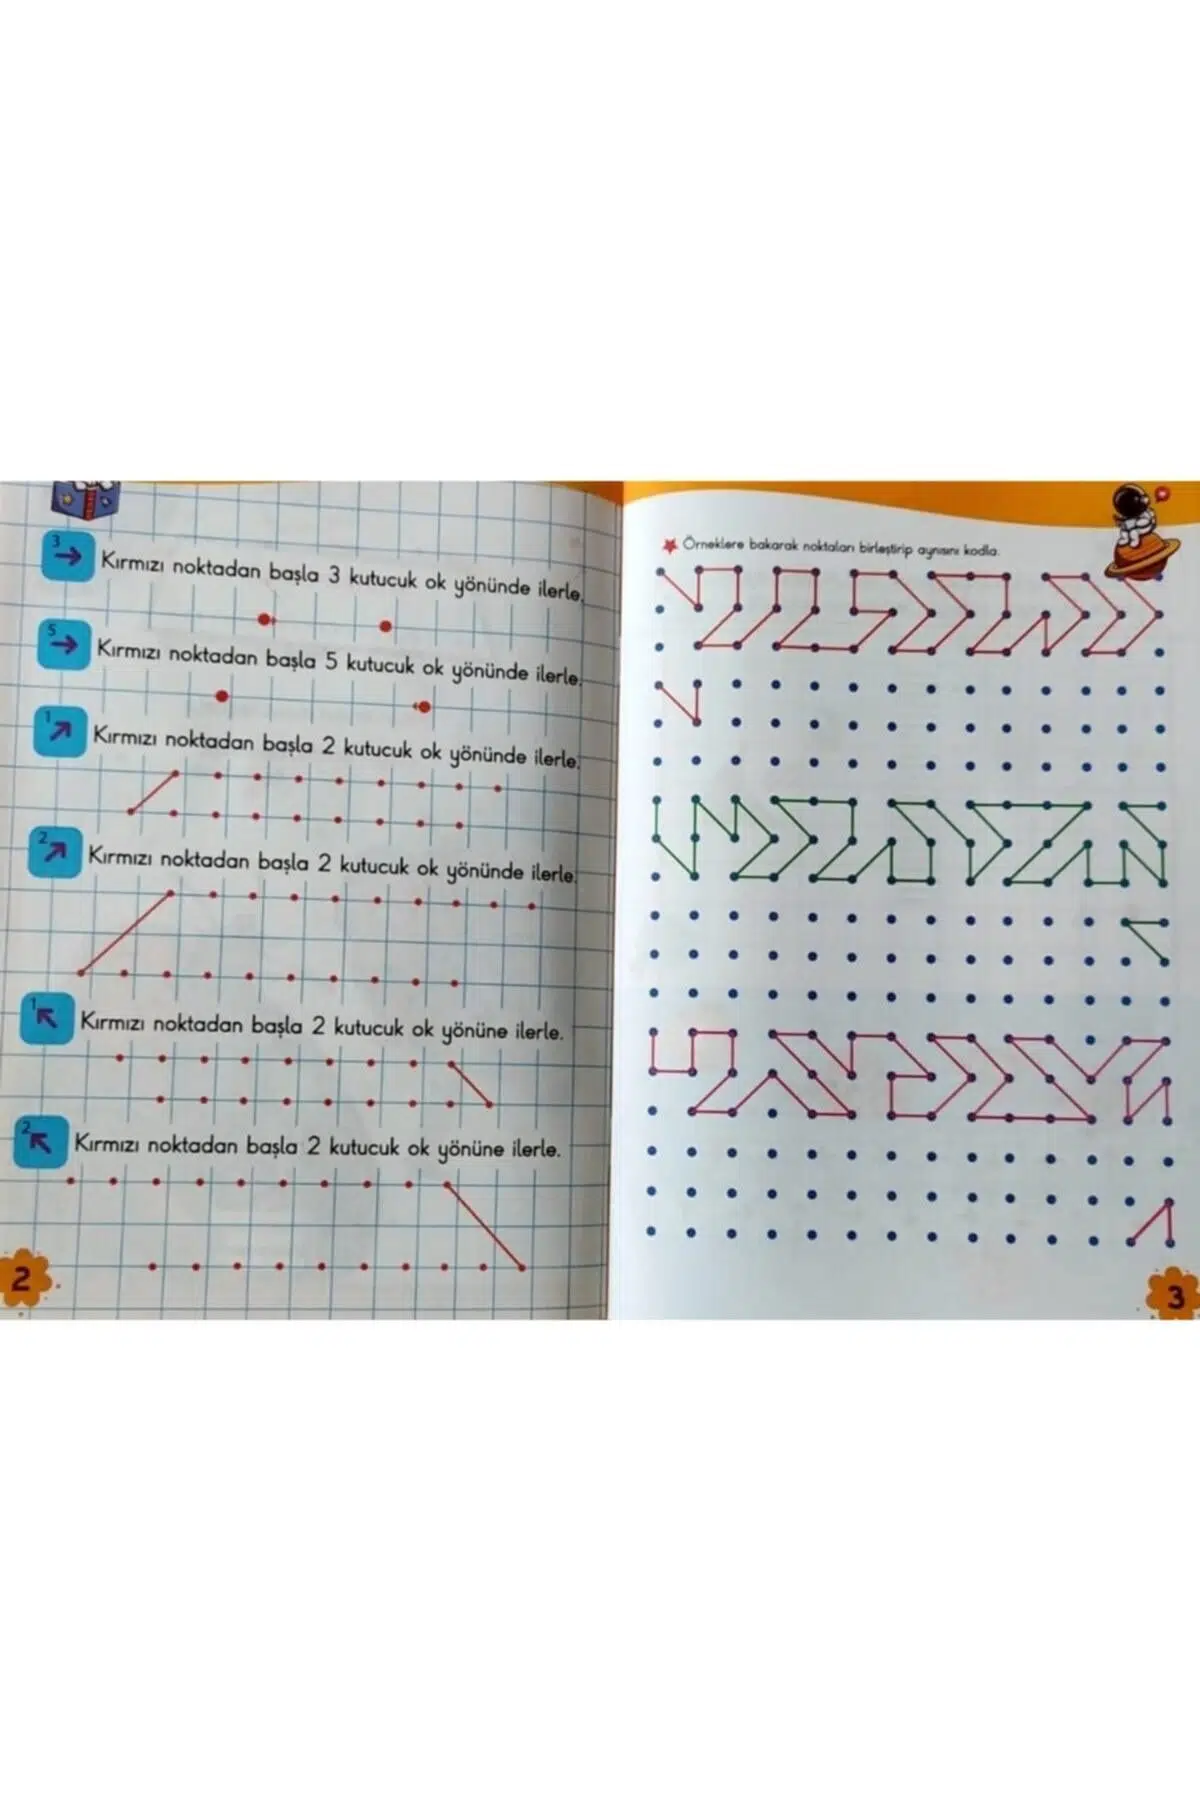 3
Kırmızı noktadan başla 3 kutucuk ok yönünde ilerle.
5
Kırmızı noktadan başla 5 kutucuk ok yönünde ilerle.
1
Kırmızı noktadan başla 2 kutucuk ok yönünde ilerle.
2
Kırmızı noktadan başla 2 kutucuk ok yönünde ilerle.
1
Kırmızı noktadan başla 2 kutucuk ok yönüne ilerle.
2
Kırmızı noktadan başla 2 kutucuk ok yönüne ilerle.
2
Örneklere bakarak noktaları birleştirip aynısını kodla.
3